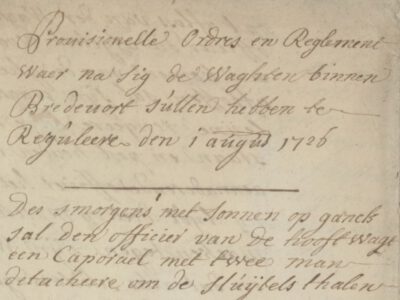 Provisionelle Ordres en Reglement
Waer na sig de Waghten binnen
Bredevort sullen hebben te
Regúleere den 1 augus 1726
Des smorgens met sonnen op ganck
sal den officier van de hooft Wagt
een Caporael met twee man
detacheere om de slúÿtels thalen